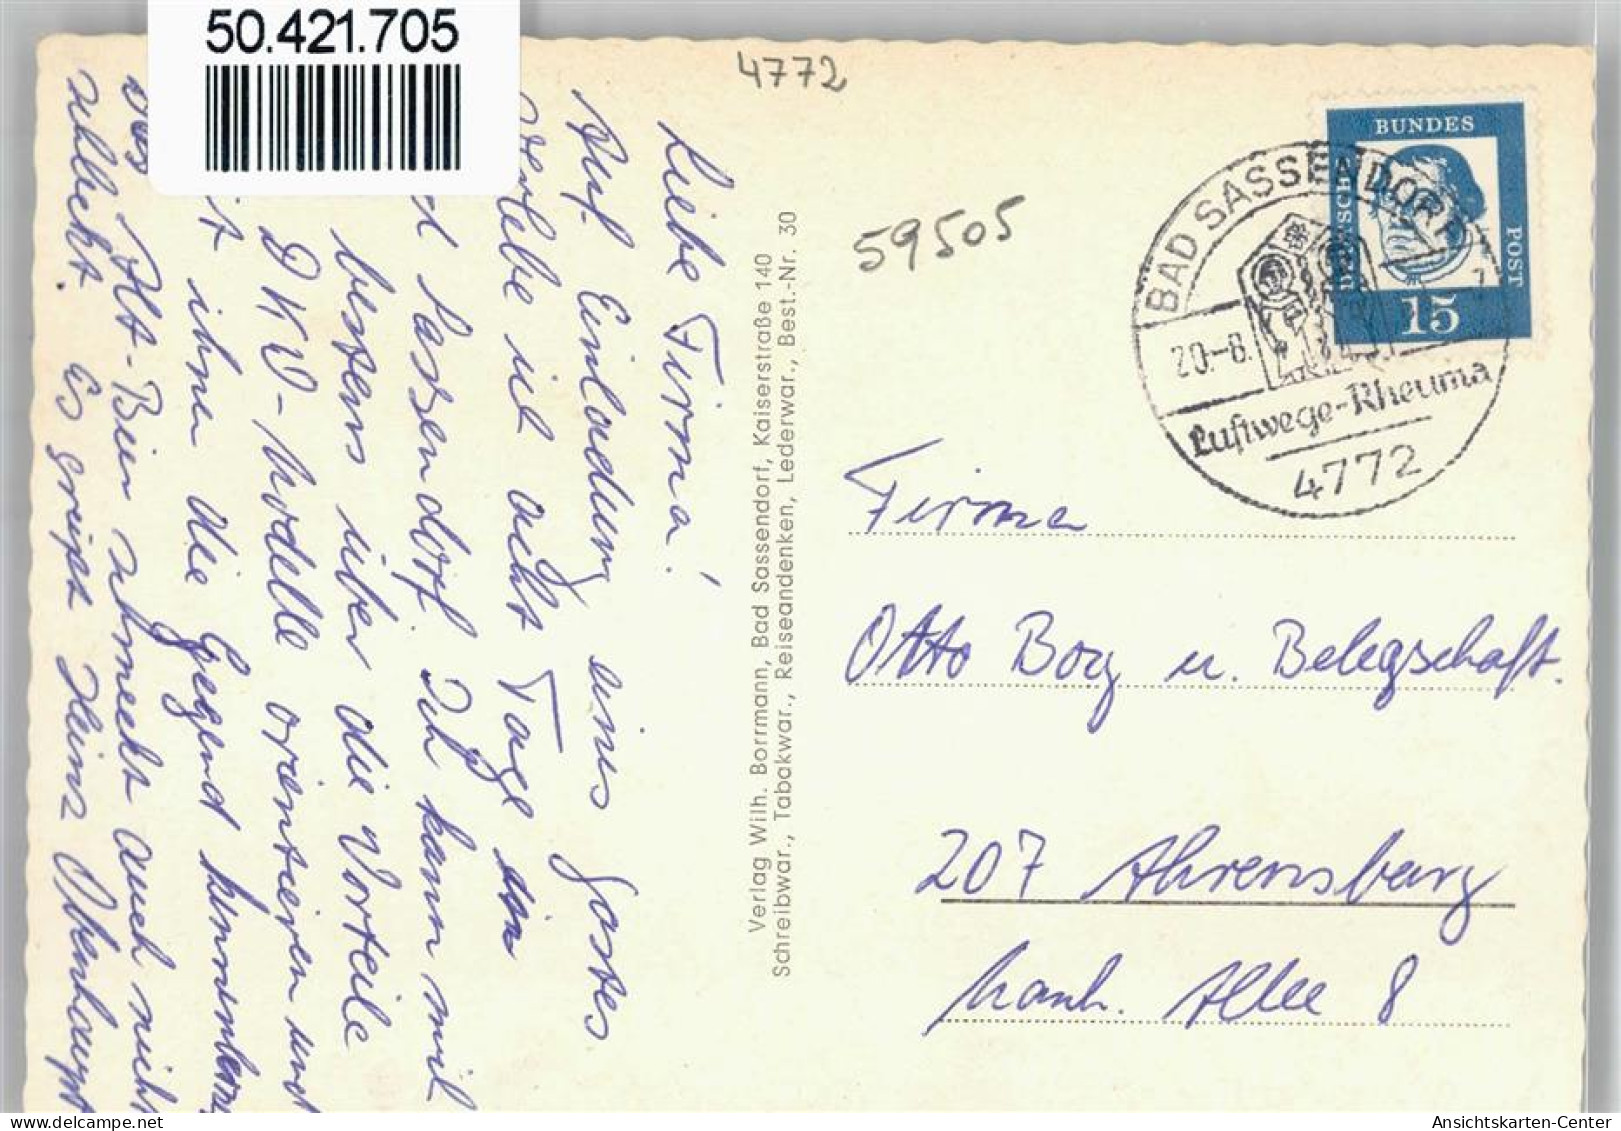 50.421.705
4772
59505
BUNDES
POST
15
BAD SASSENDORF
20.-8.
Luftwege-Rheuma
4772
Liebe Firma!
Auf Einladung eines Gastes
verlebe ich acht Tage in
Sassendorf. Ich kann mich
bestens über die Vorteile
DKW-Modelle orientieren und
ihnen die Gegend
Das Alt-Bier schmeckt auch nicht
schlecht. Es grüßt Heinz
Verlag Wilh. Borrmann, Bad Sassendorf, Kaiserstraße 140
Schreibwar., Tabakwar., Reiseandenken, Lederwar., Best.-Nr. 30
Firma
Otto Borg u. Belegschaft.
207 Ahrensburg
Manh. Allee 8
Ansichtskarten-Center